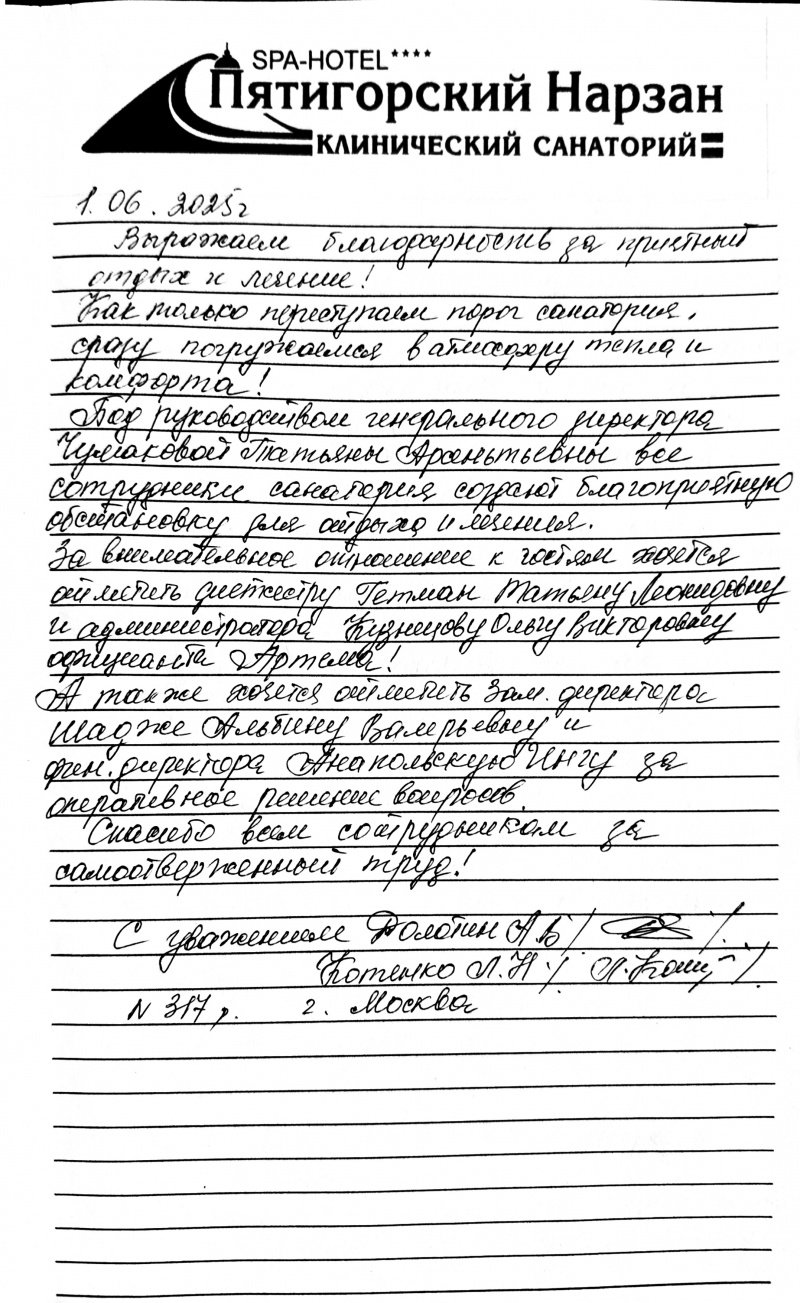 SPA-HOTEL****
Пятигорский Нарзан
КЛИНИЧЕСКИЙ САНАТОРИЙ
1.06.2025г
Выражаем благодарность за приятный
отдых и лечение!
Как только переступаем порог санатория,
сразу погружаемся в атмосферу тепла и
комфорта!
Под руководством генерального директора
Чумаковой Татьяны все
сотрудники санатория создают благоприятную
обстановку для отдыха и лечения.
За внимательное отношение к гостям хочется
отметить диетсестру Гетман Татьяну Леонидовну
и администратора Кузнецову Ольгу Викторовну
официанта Артема!
А также хочется отметить зам. директора
Шадже Альбину Валерьевну и
фин. директора Анапольскую Ингу за
оперативное решение вопросов.
Спасибо всем сотрудникам за
самоотверженный труд!
С уважением Долотин А В / /
Котенко Л. Н / /
N 317 г. Москва